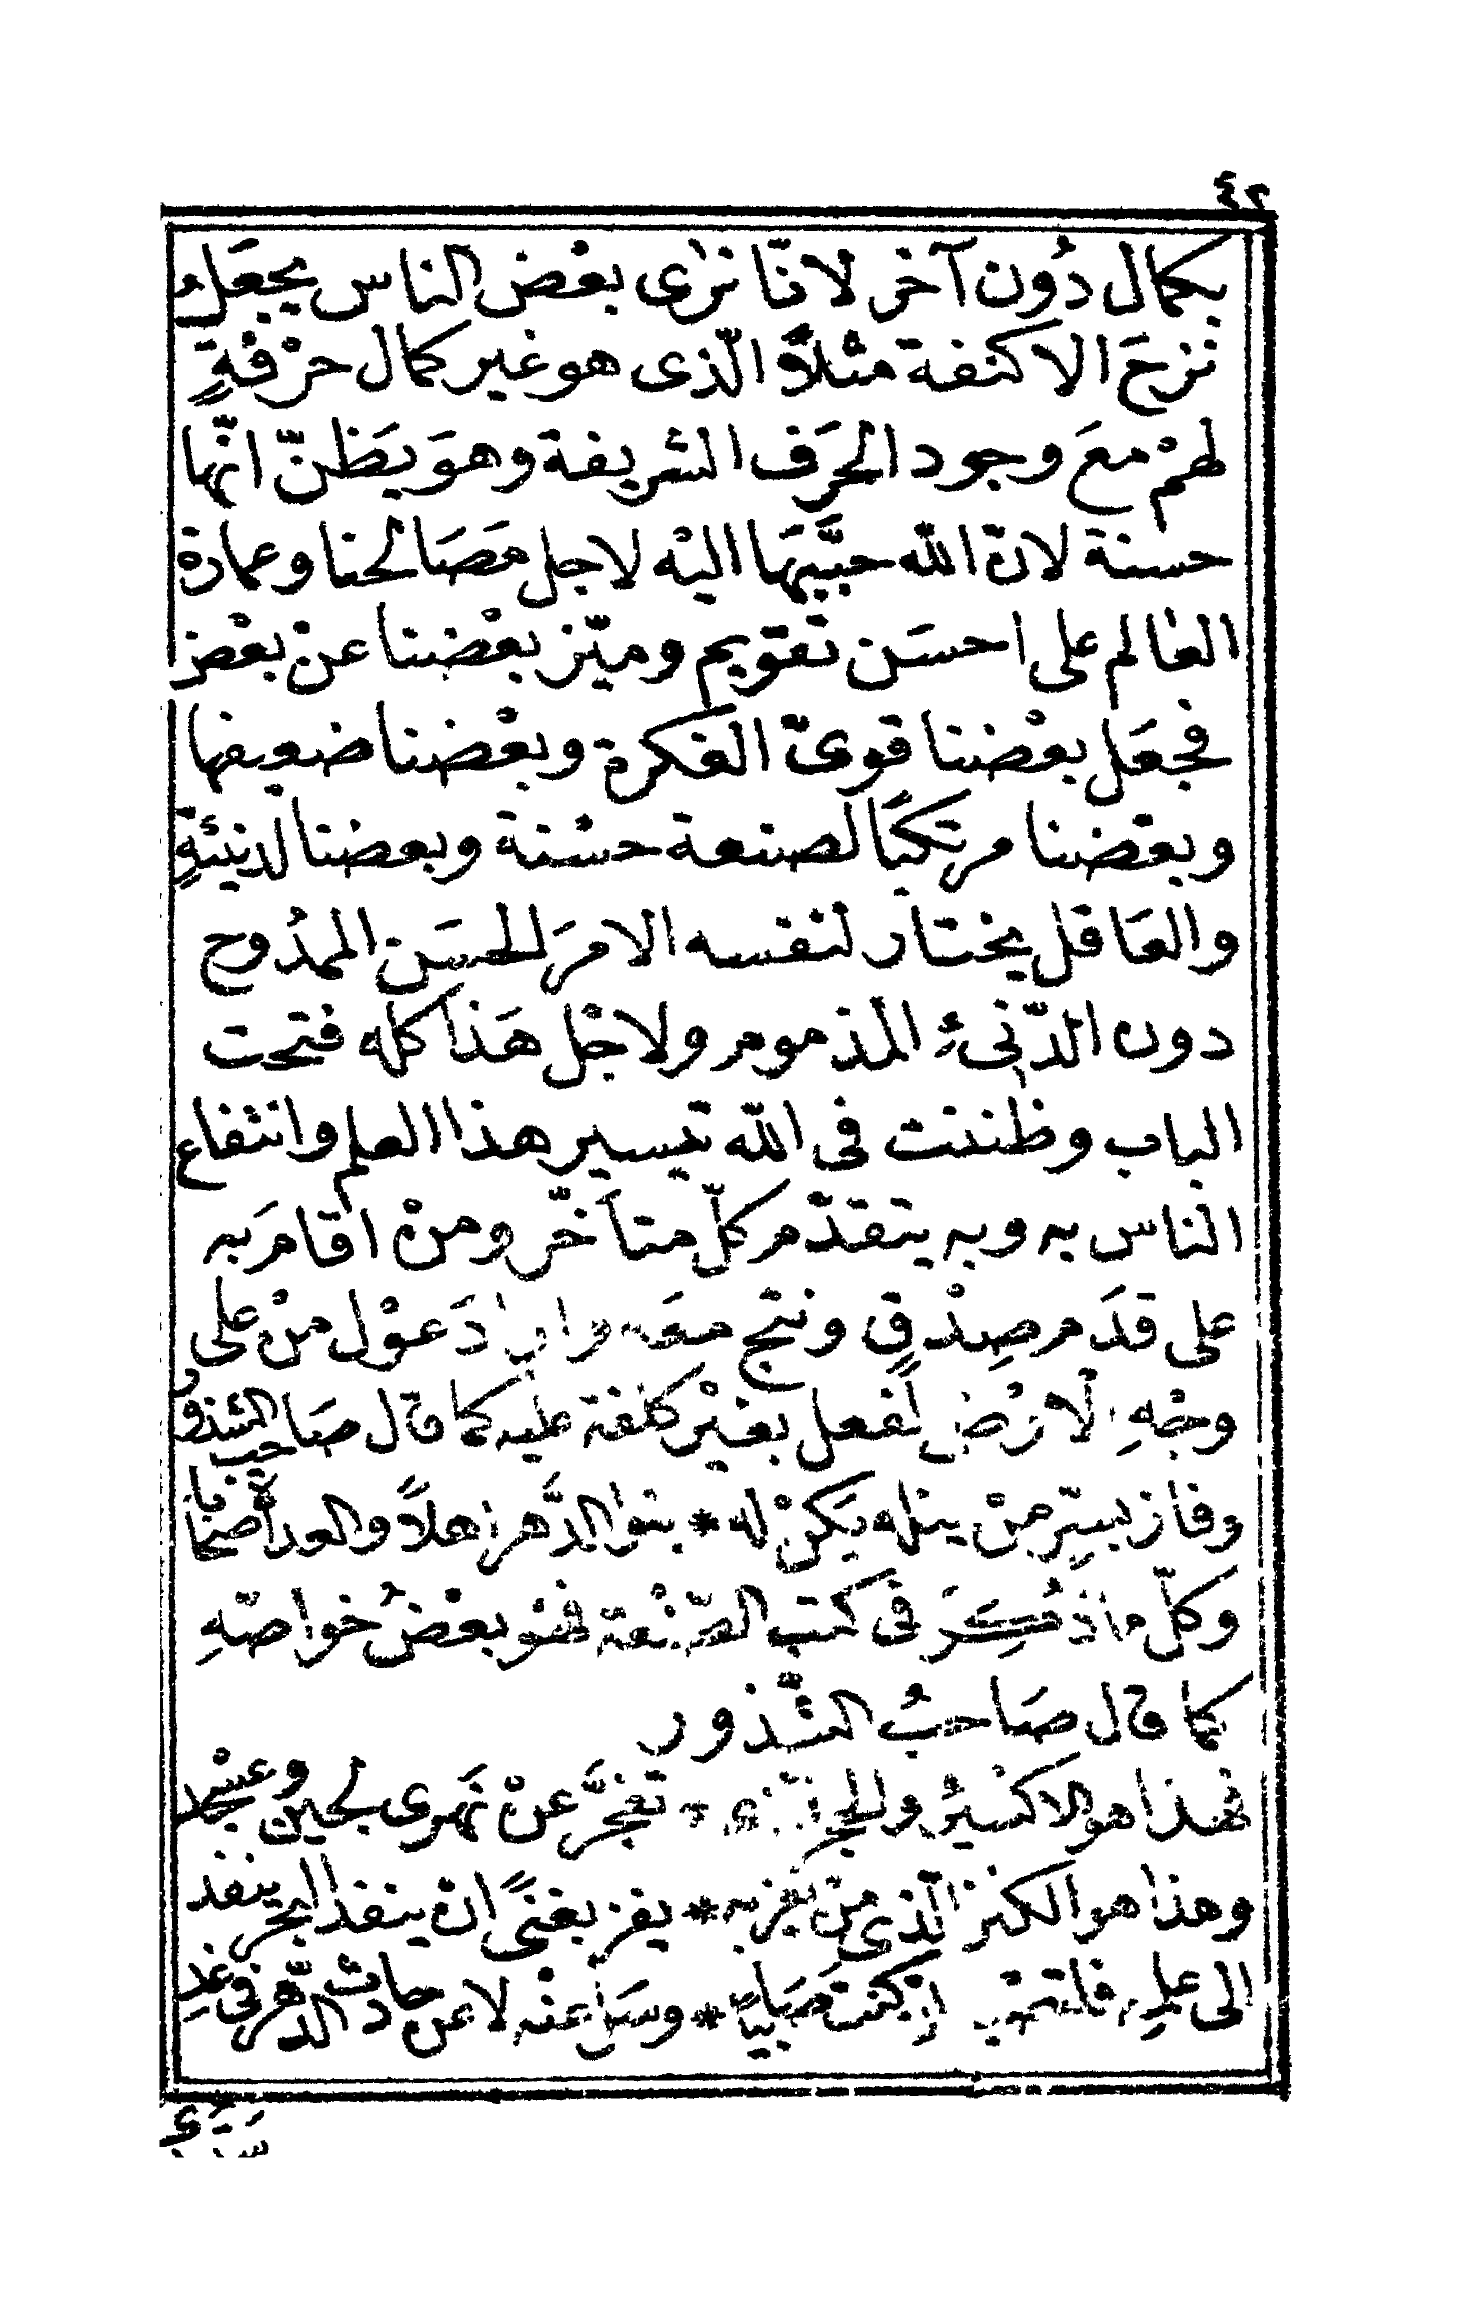 ٤٢
بكمال دُون آخر لانّا نرٰى بعْض الناس يجعَل
نزحَ الاكنفة مثلاً الّذى هو غير كمال حرْفةٍ
لهمْ معَ وجود الحرَف الشريفة وهوَ يَظنّ انّها
حسنة لانّ الله حبَّبَها اليْه لاجل مَصَالحنا وعمارة
العٰالم على احسَن تقويم وميّز بعْضنا عنْ بعْض
فجْعَل بعْضنا قوىّ الفكرة وبعْضنا ضعيفها
وبعْضنا مرتكبًا لصنعة حسْنة وبعضنا لدنيئةٍ
والعَاقل يختار لنفسه الامرَ الحسَن الممدُوح
دون الدّنىءِ المذموم ولاجْل هَذا كله فتحت
الباب وظننت فى الله تيسير هذا العلم وانتفاع
الناس به وبه يتقدّم كلّ متأخّر ومنْ اقامَ به
على قدَم صِدْقٍ ونتج معَه دَعوْل منْ على
وجْهِ الارْض لفعل بغيْر كلفة عليه كما قال صَاحب الشذور
وفاز بسِرّ منْ ينله يَكنْ له * بنوا الدَّهر اهلاً والعداة صحابا
وكلّ ماذُكِرَ فى كتب الصّنْعة فهْو بعْضُ خواصّهِ
كما قال صَاحبُ الشّذور
فهذا هو الاكسيرُ والحجر * تفجَّرَ عنْ نهرى لجين وعسْجد
وهذا هو الكنز الّذى منْ يفز به * يفز بغنًى انْ ينفذ البحر ينفد
الى علمِه فلتـ إنْ كنت صَابيًا * وسَل عنْه لا عن حادث الدّهر فى غدِ